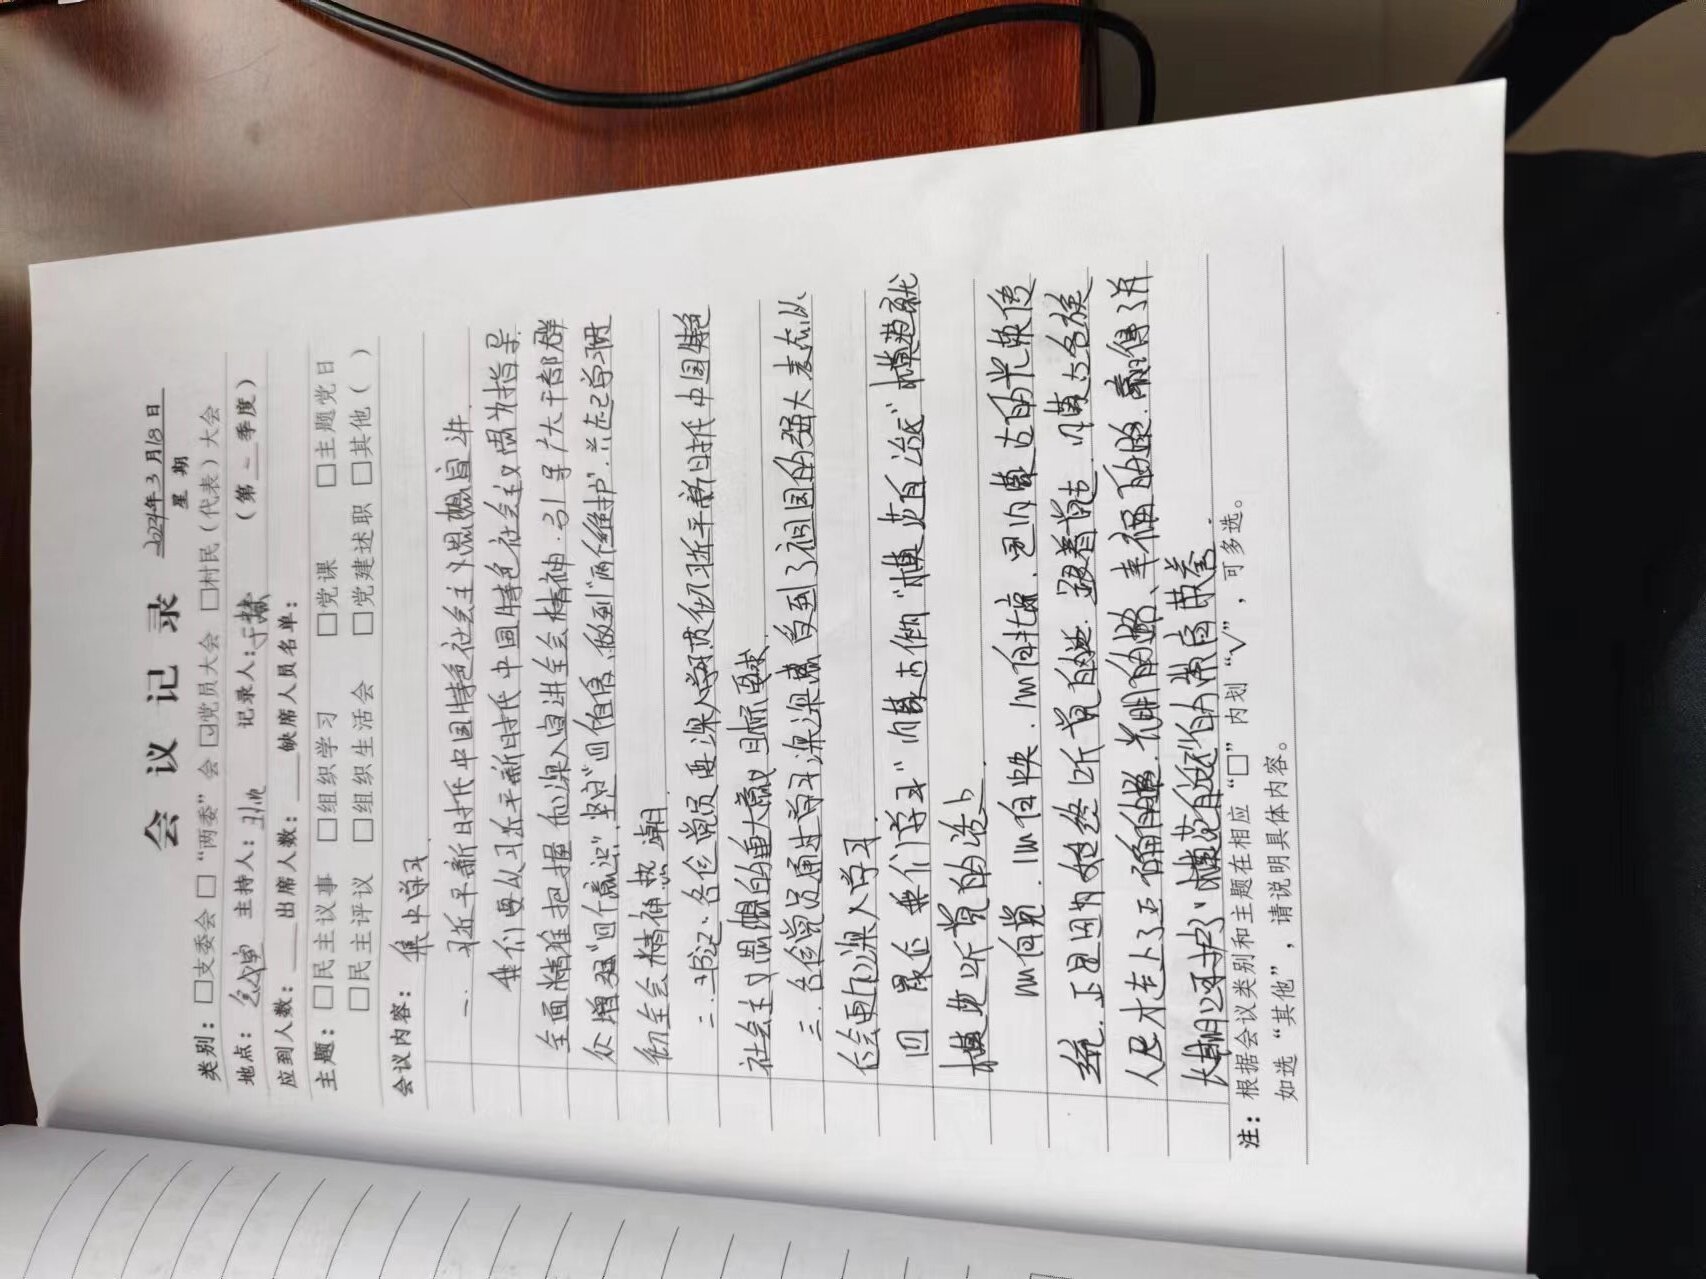 会议记录
2024年3月18日
星期
类别：□支委会 □“两委”会 ☑党员大会 □村民（代表）大会
地点：会议室 主持人： 记录人： （第二季度）
应到人数： 出席人数： 缺席人员名单：
主题：□民主议事 □组织学习 □党课 □主题党日
□民主评议 □组织生活会 □党建述职 □其他（ ）
会议内容： 集中学习
一、习近平新时代中国特色社会主义思想宣讲.
我们要以习近平新时代中国特色社会主义思想为指导
全面精准把握 深入宣讲全会精神.引导广大干部群
众增强“四个意识”坚定“四个自信”做到“两个维护”.兴起学习贯
彻全会精神热潮.
二.书记、各位党员要深入学习贯彻习近平新时代中国特色
社会主义思想的重大 目标要求.
三、各位党员通过学习深深感受到了祖国的强大表态以
后会更加深入学习.
四 最后 我们学习“内蒙古的“模范自治区”模范就
模范在听党的话上.
心向党.心向中央.心向北京.因内蒙古的光荣传
统.正因为始终听党的话.跟着党走.内蒙古各族
人民才走上了正确的路.光明的路、幸福的路.赢得了并
长期以来守护了“模范自治区”的崇高荣誉.
注：根据会议类别和主题在相应“□”内划“√”，可多选。
如选“其他”，请说明具体内容。